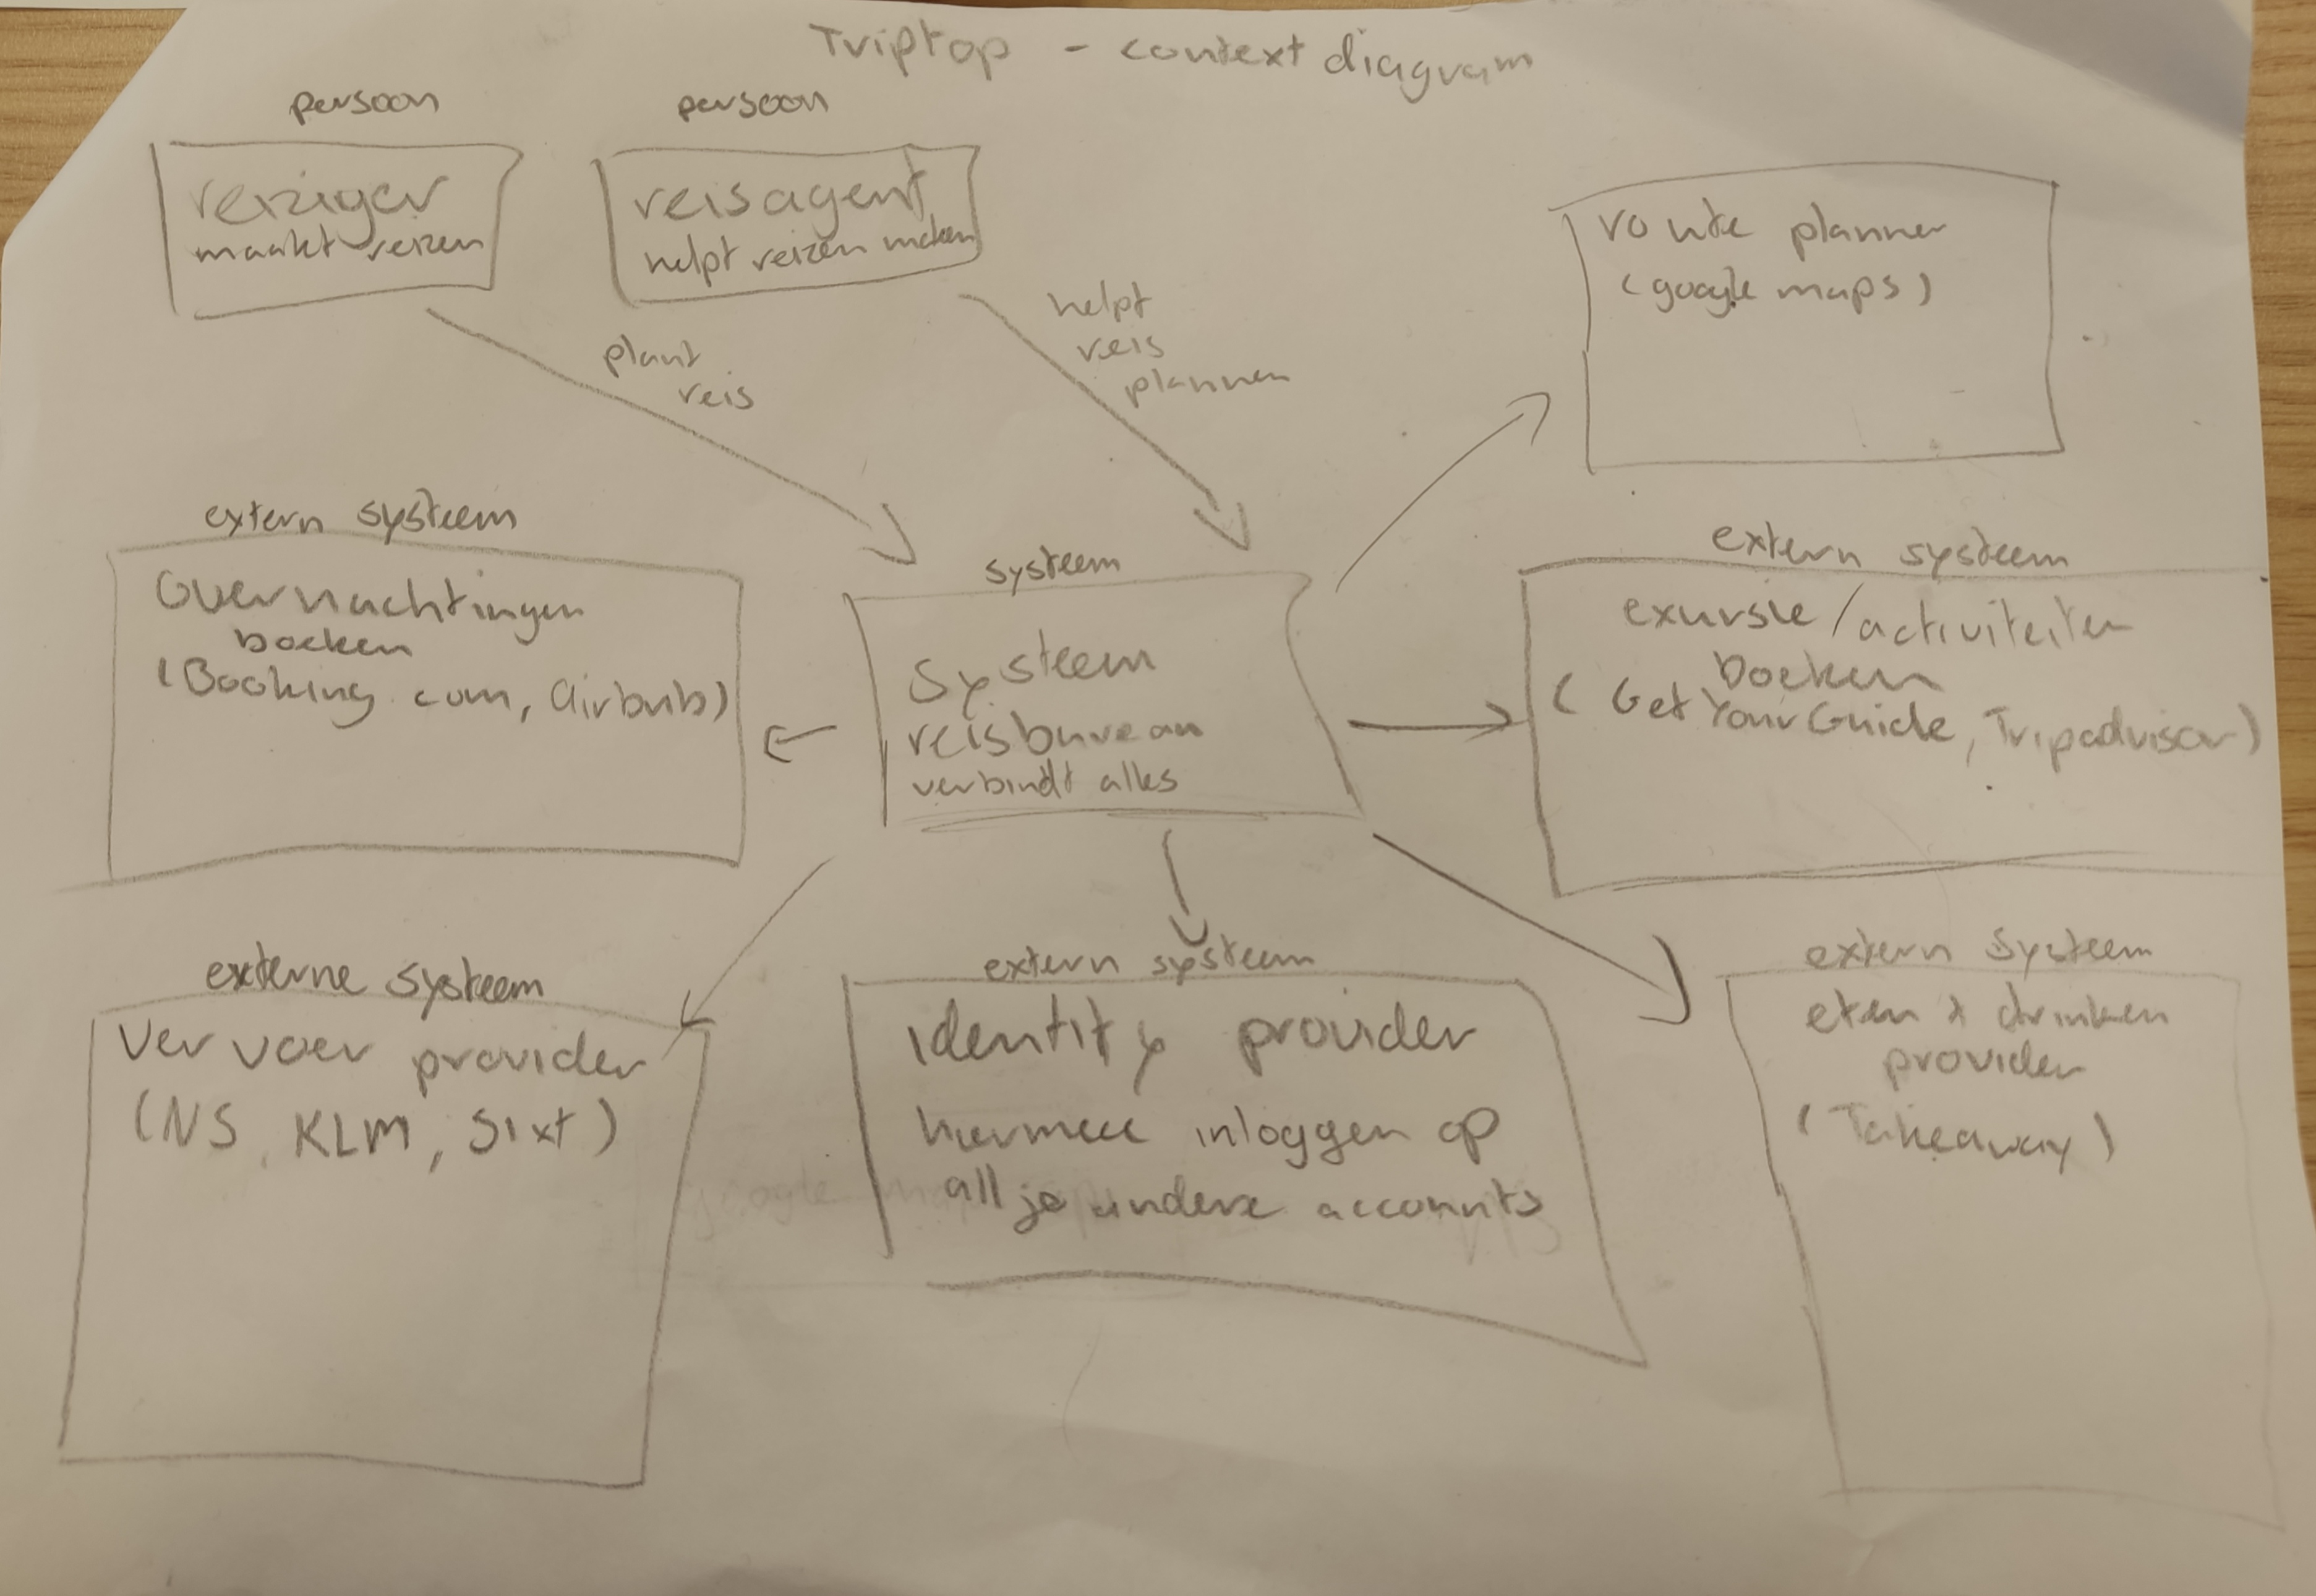 Triptop - context diagram
persoon
reiziger
maakt reizen
persoon
reisagent
helpt reizen maken
plant
reis
helpt
reis
plannen
route planner
(google maps)
extern systeem
Overnachtingen
boeken
(Booking.com, Airbnb)
systeem
Systeem
reisbureau
verbindt alles
extern systeem
exursie/activiteiten
boeken
(GetYourGuide, Tripadvisor)
externe systeem
Vervoer provider
(NS, KLM, Sixt)
extern systeem
identity provider
hiermee inloggen op
all je andere accounts
extern systeem
eten & drinken
provider
(Takeaway)